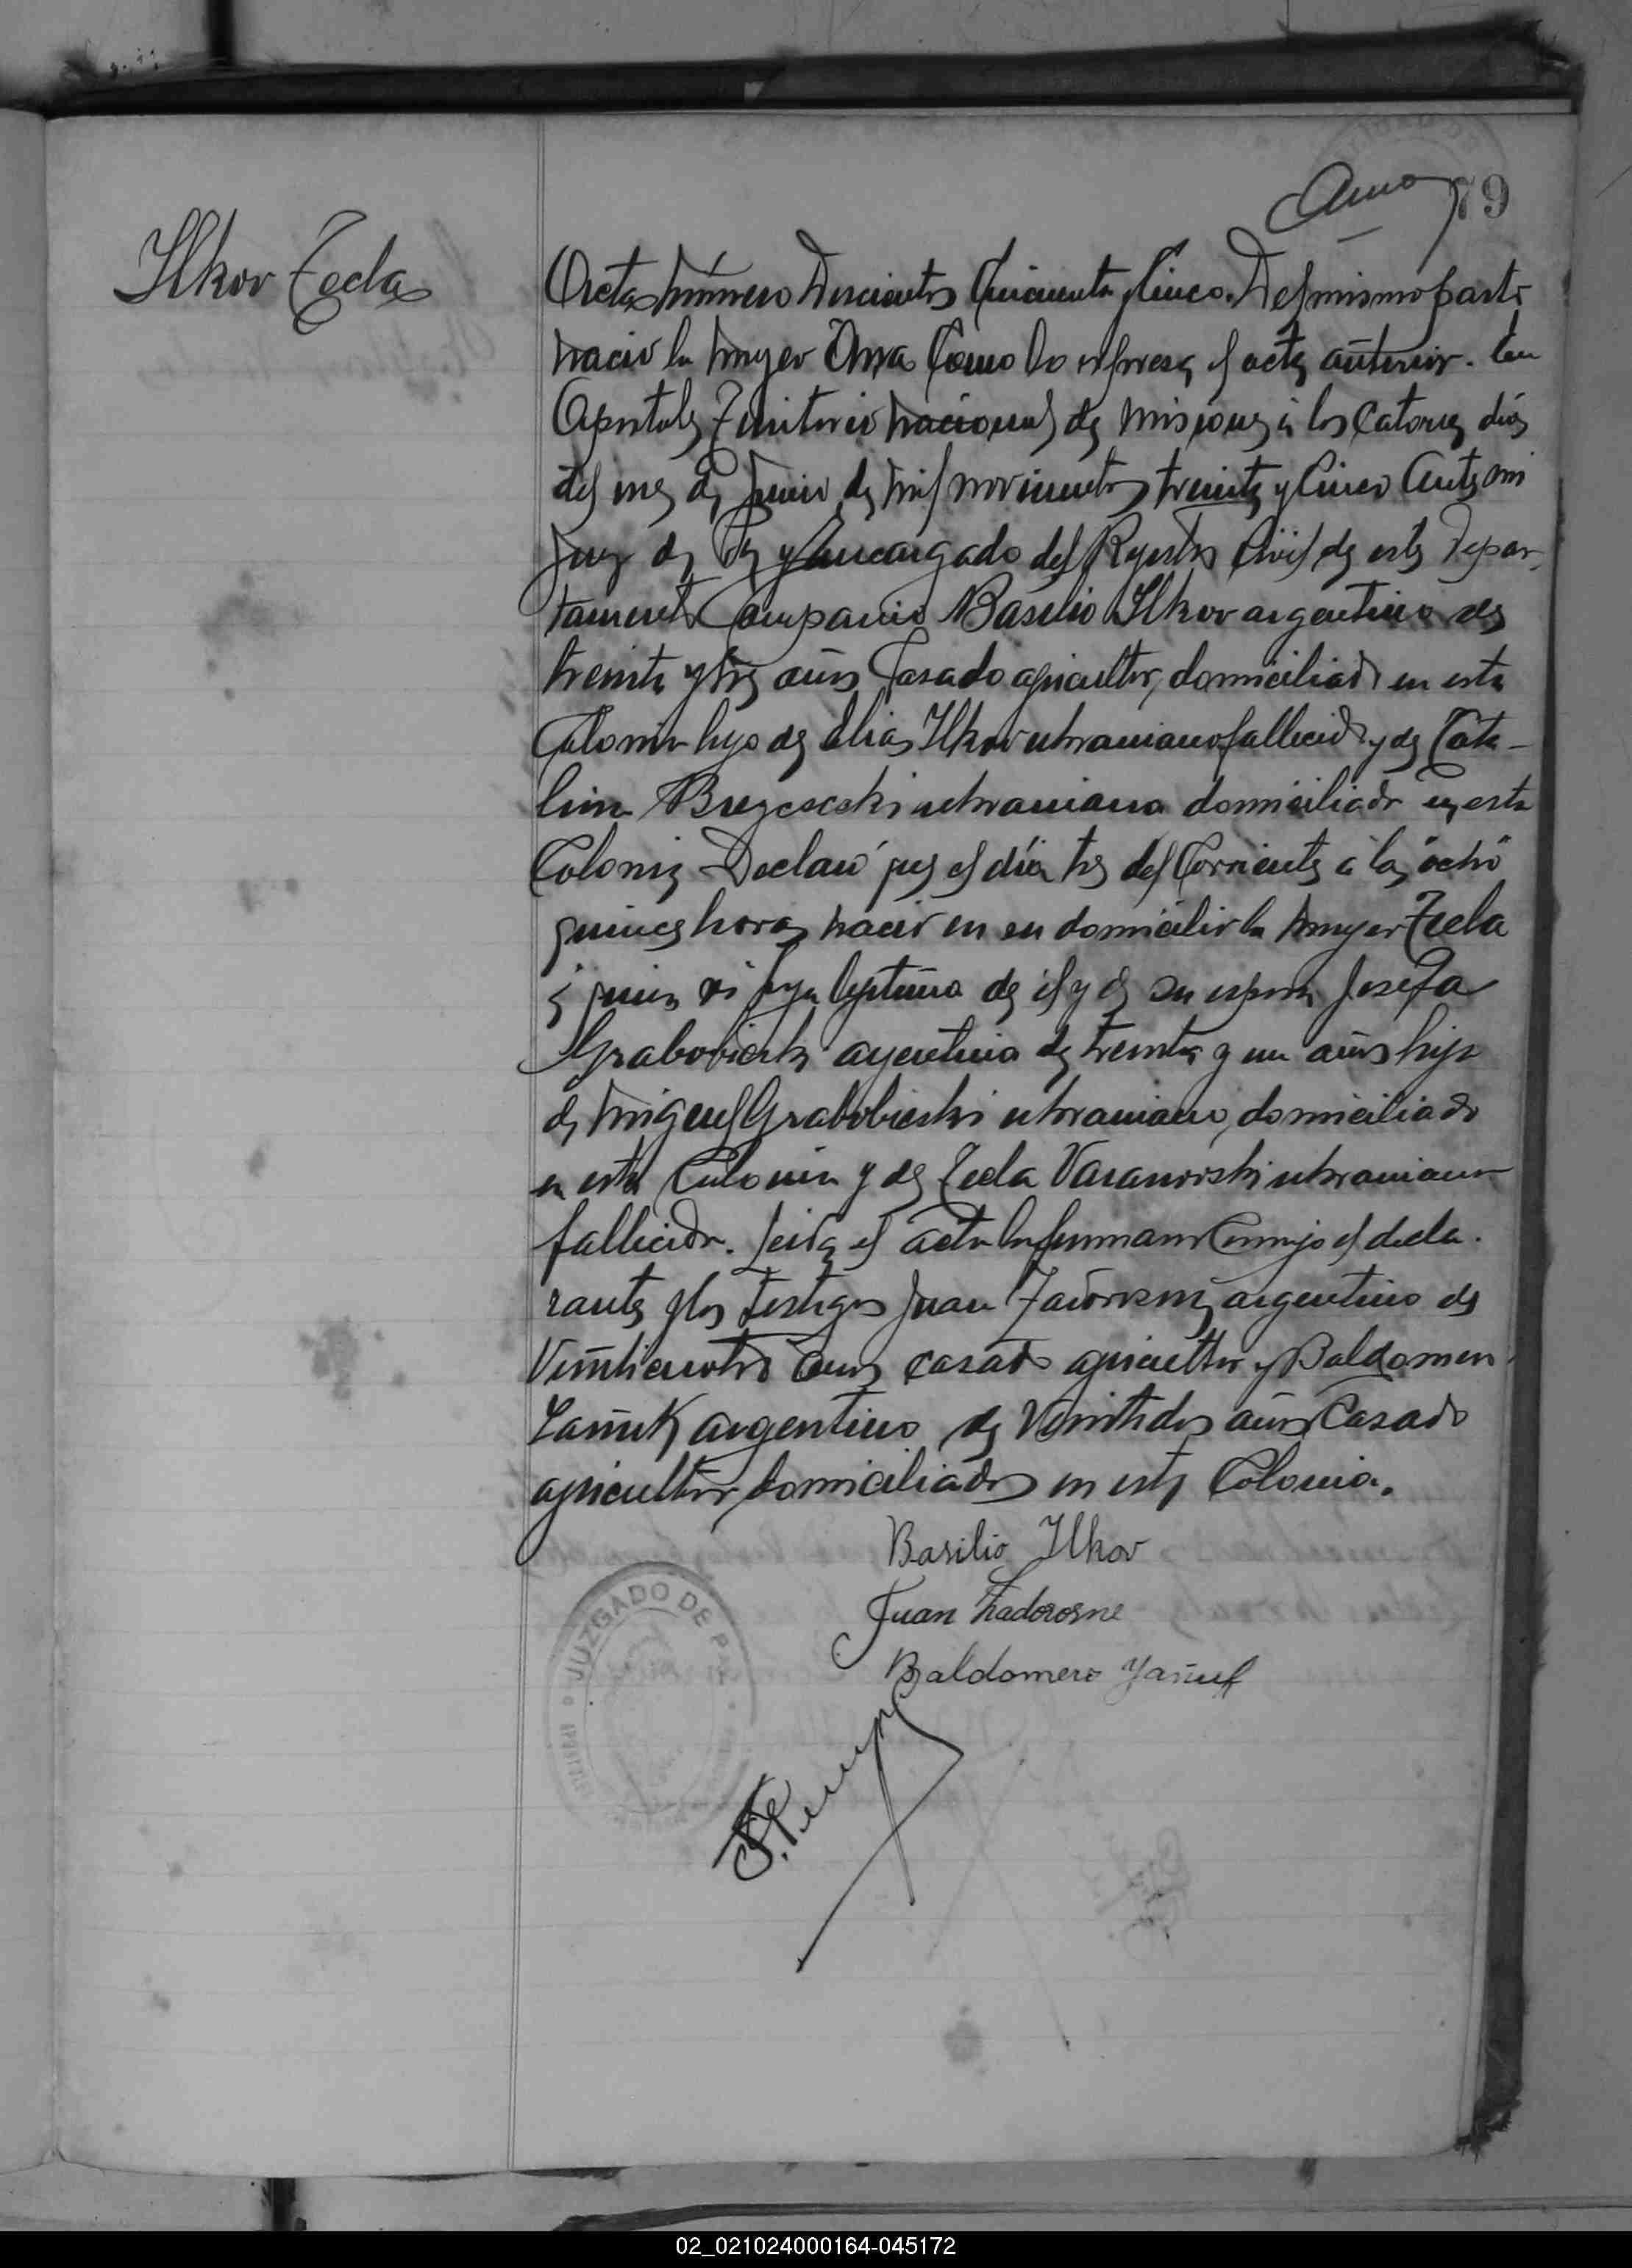 79
Ilkov Tecla
Acta número Doscientos Cincuenta y Cinco. Del mismo parto
nació la mujer Ana Como lo expresa el acta anterior. En
Apostoles Territorio nacional de Misiones á los Catorce días
del mes de Junio de mil novecientos treinta y Cinco Ante mi
Juez de Paz y Encargado del Registro Civil de este Depar-
tamento Compareció Basilio Ilkov argentino de
treinta y tres años Casado agricultor, domiciliado en esta
Colonia hijo de Elias Ilkov ukraniano fallecido y de Cata-
lina ukraniana domiciliada en esta
Colonia Declaró que el día tres del Corriente á las "ocho"
quince horas nació en su domicilio la mujer Tecla
á quien vi hija legitima de él y de su esposa Josefa
Grabovieski argentina de treinta y un años hija
de Miguel Grabobieski ukraniano, domiciliado
en esta Colonia y de Tecla ukraniana
fallecida. Leida el acta la firmaron Conmigo el decla-
rante y los testigos Juan argentino de
Veinticuatro años casado agricultor y Baldomero
Yañuk argentino de Veintidos años Casado
agricultor, domiciliados en esta Colonia.
Basilio Ilkov
Juan Zadorosne
Baldomero Yañuk
JUZGADO DE PAZ
02_021024000164-045172